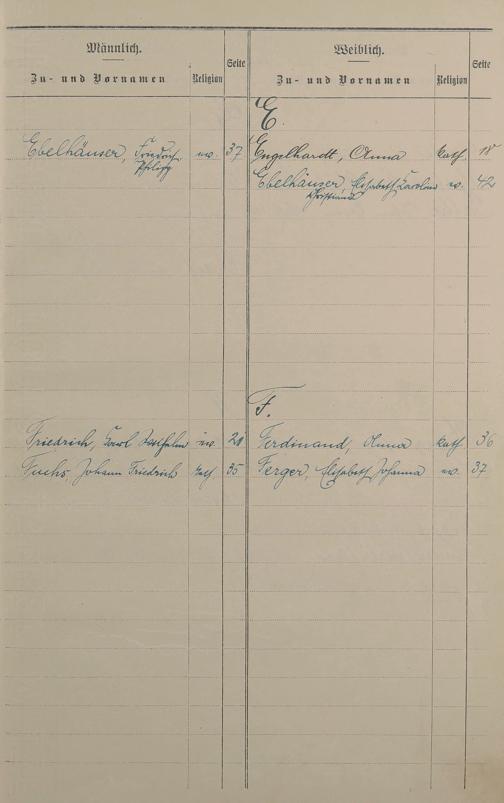 Männlich.
Zu- und Vornamen Religion Seite
Weiblich.
Zu- und Vornamen Religion Seite
E.
Ebelhäuser, Friedrich ev. 37
Philipp
Engelhardt, Anna kath. 18
Ebelhäuser, Elisabeth Karoline ev. 42
Christiane
F.
Friedrich, Karl Wilhelm ev. 21
Ferdinand, Anna kath. 36
Fuchs, Johann Friedrich kath. 35
Ferger, Elisabeth Johanna ev. 37